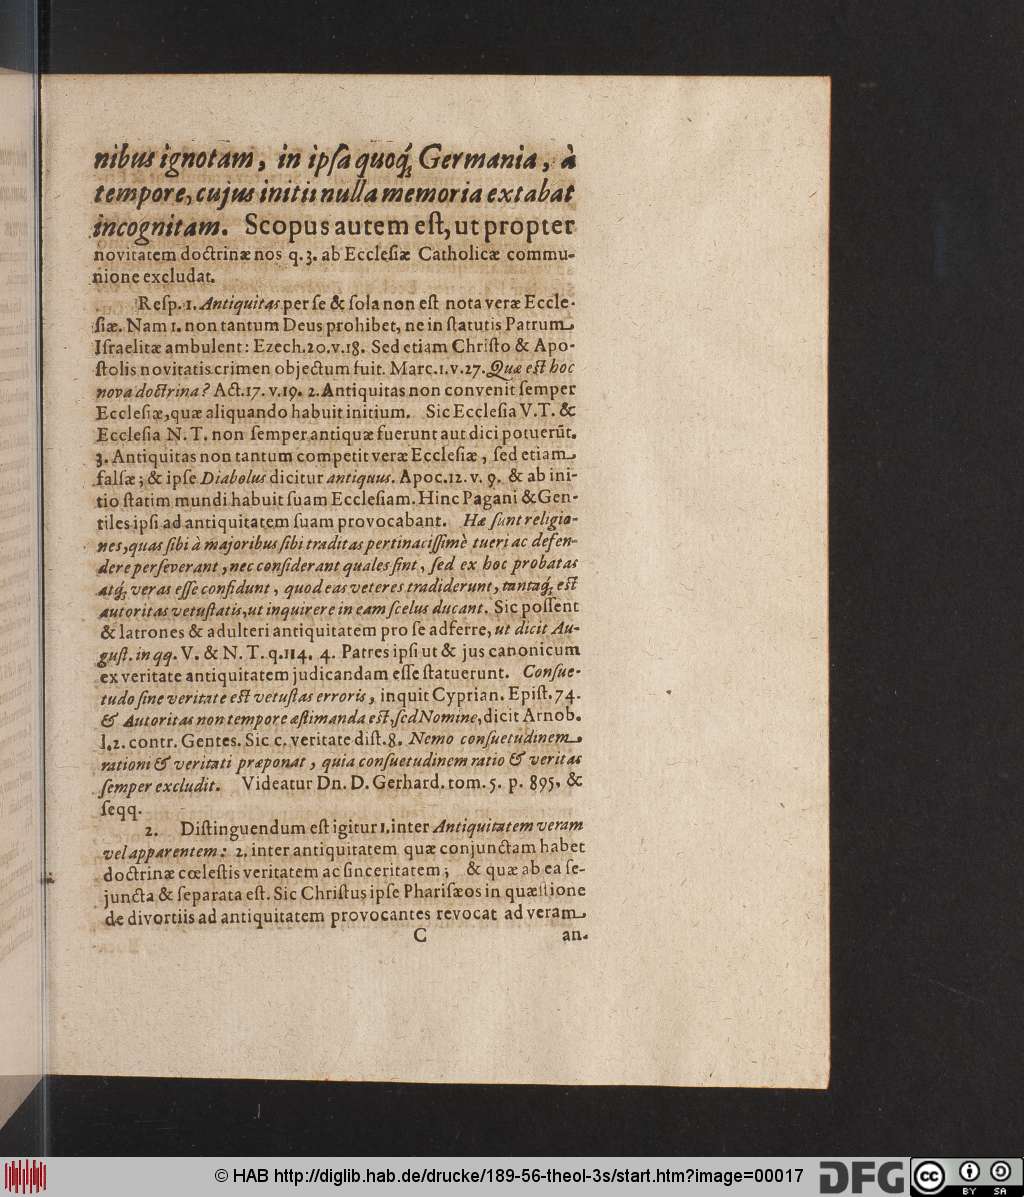 nibus ignotam, in ipſa quoq́; Germania, à
tempore, cujus initii nulla memoria extabat
incognitam. Scopus autem eſt, ut propter
novitatem doctrinæ nos q. 3. ab Eccleſiæ Catholicæ commu-
nione excludat.
Reſp. 1. Antiquitas per ſe & ſola non eſt nota veræ Eccle-
ſiæ. Nam 1. non tantum Deus prohibet, ne in ſtatutis Patrum
Iſraelitæ ambulent: Ezech. 20. v. 18. Sed etiam Chriſto & Apo-
ſtolis novitatis crimen objectum fuit. Marc. 1. v. 27. Quæ eſt hoc
nova doctrina? Act. 17. v. 19. 2. Antiquitas non convenit ſemper
Eccleſiæ, quæ aliquando habuit initium. Sic Eccleſia V. T. &
Eccleſia N. T. non ſemper antiquæ fuerunt aut dici potuerũt.
3. Antiquitas non tantum competit veræ Eccleſiæ, ſed etiam
falſæ; & ipſe Diabolus dicitur antiquus. Apoc. 12. v. 9. & ab ini-
tio ſtatim mundi habuit ſuam Eccleſiam. Hinc Pagani & Gen-
tiles ipſi ad antiquitatem ſuam provocabant. Hæ ſunt religio-
nes, quas ſibi à majoribus ſibi traditas pertinaciſſimè tueri ac defen-
dere perſeverant, nec conſiderant quales ſint, ſed ex hoc probatas
atq́; veras eſſe confidunt, quod eas veteres tradiderunt, tantaq́; eſt
autoritas vetuſtatis, ut inquirere in eam ſcelus ducant. Sic poſſent
& latrones & adulteri antiquitatem pro ſe adferre, ut dicit Au-
guſt. in qq. V. & N. T. q. 114. 4. Patres ipſi ut & jus canonicum
ex veritate antiquitatem judicandam eſſe ſtatuerunt. Conſue-
tudo ſine veritate eſt vetuſtas erroris, inquit Cyprian. Epiſt. 74.
& Autoritas non tempore æſtimanda eſt, ſed Nomine, dicit Arnob.
l. 2. contr. Gentes. Sic c. veritate diſt. 8. Nemo conſuetudinem
rationi & veritati præponat, quia conſuetudinem ratio & veritas
ſemper excludit. Videatur Dn. D. Gerhard. tom. 5. p. 895. &
ſeqq.
2. Diſtinguendum eſt igitur 1. inter Antiquitatem veram
vel apparentem: 2. inter antiquitatem quæ conjunctam habet
doctrinæ cœleſtis veritatem ac ſinceritatem; & quæ ab ea ſe-
juncta & ſeparata eſt. Sic Chriſtus ipſe Phariſæos in quæſtione
de divortiis ad antiquitatem provocantes revocat ad veram
C an-
© HAB http://diglib.hab.de/drucke/189-56-theol-3s/start.htm?image=00017
DFG
cc BY SA